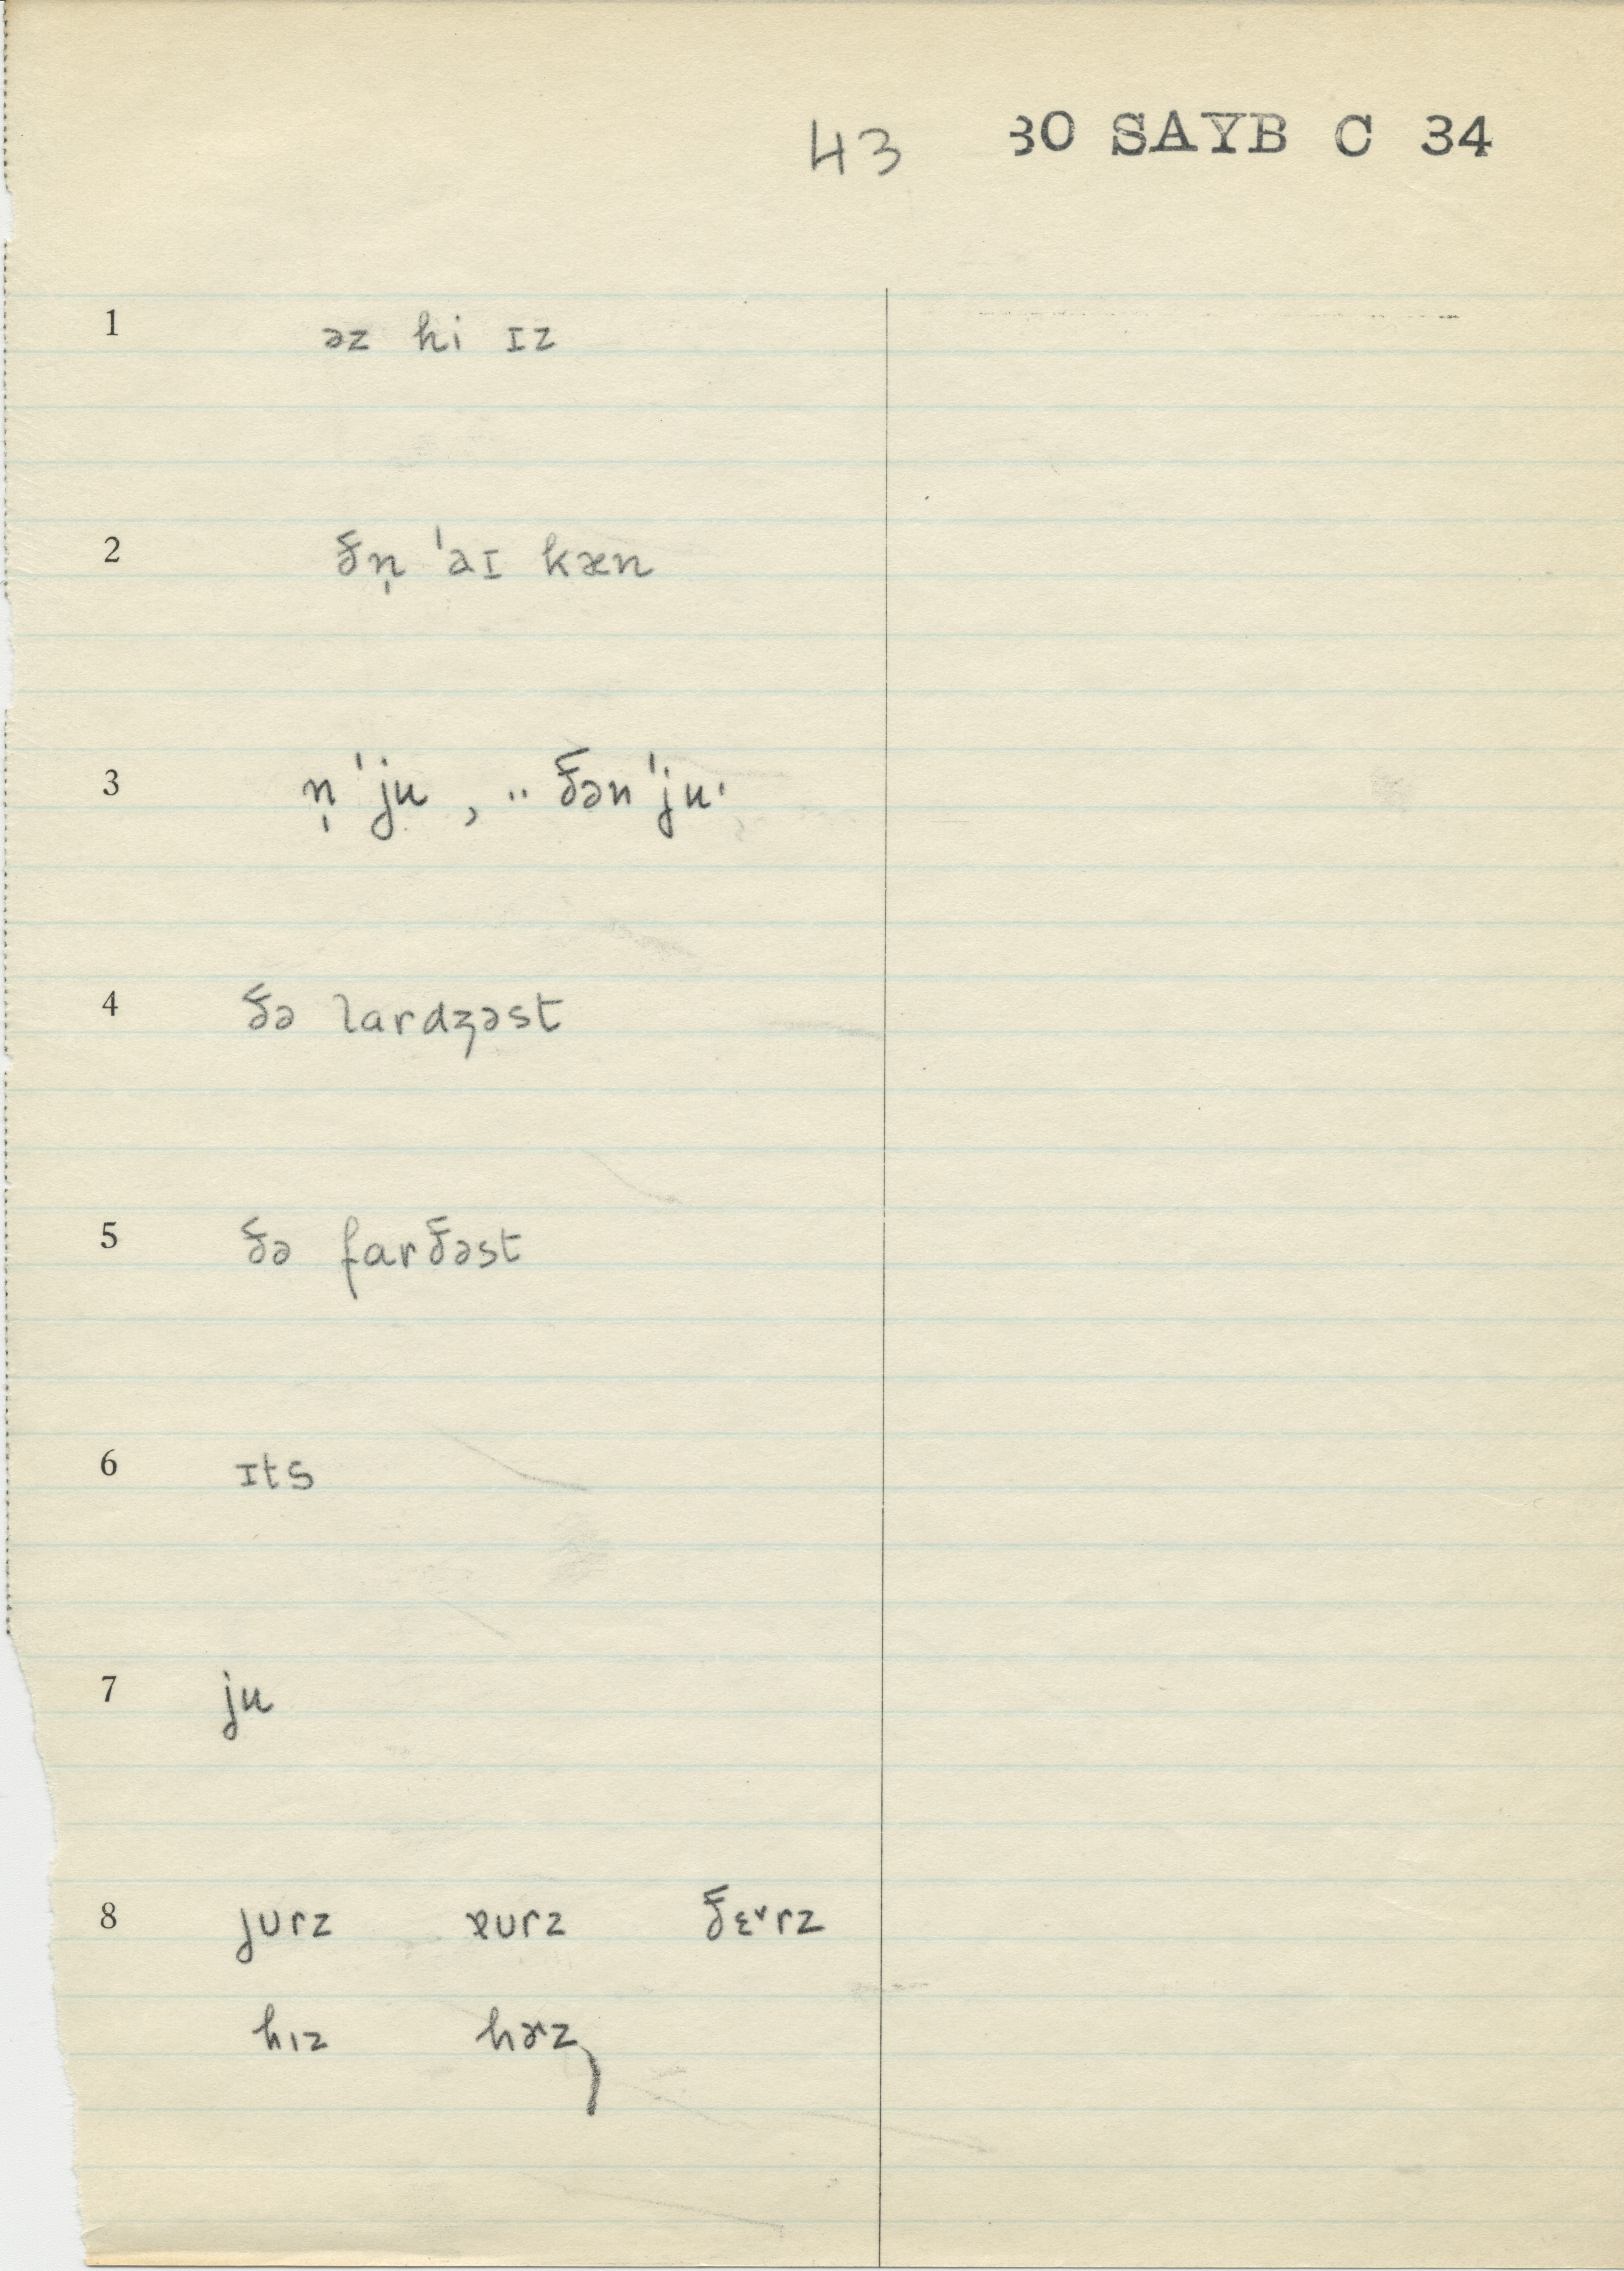 43 30 SAYB C 34
1 əz hi ɪz
2 ðn̩ ˈaɪ kæn
3 n̩ ˈju , ¨ ðən ˈjuˑ
4 ðə lardʒəst
5 ðə farðəst
6 ɪts
7 ju
8 jʊrz ɐʊrz ðɛ˅rz
hɪz hɚz